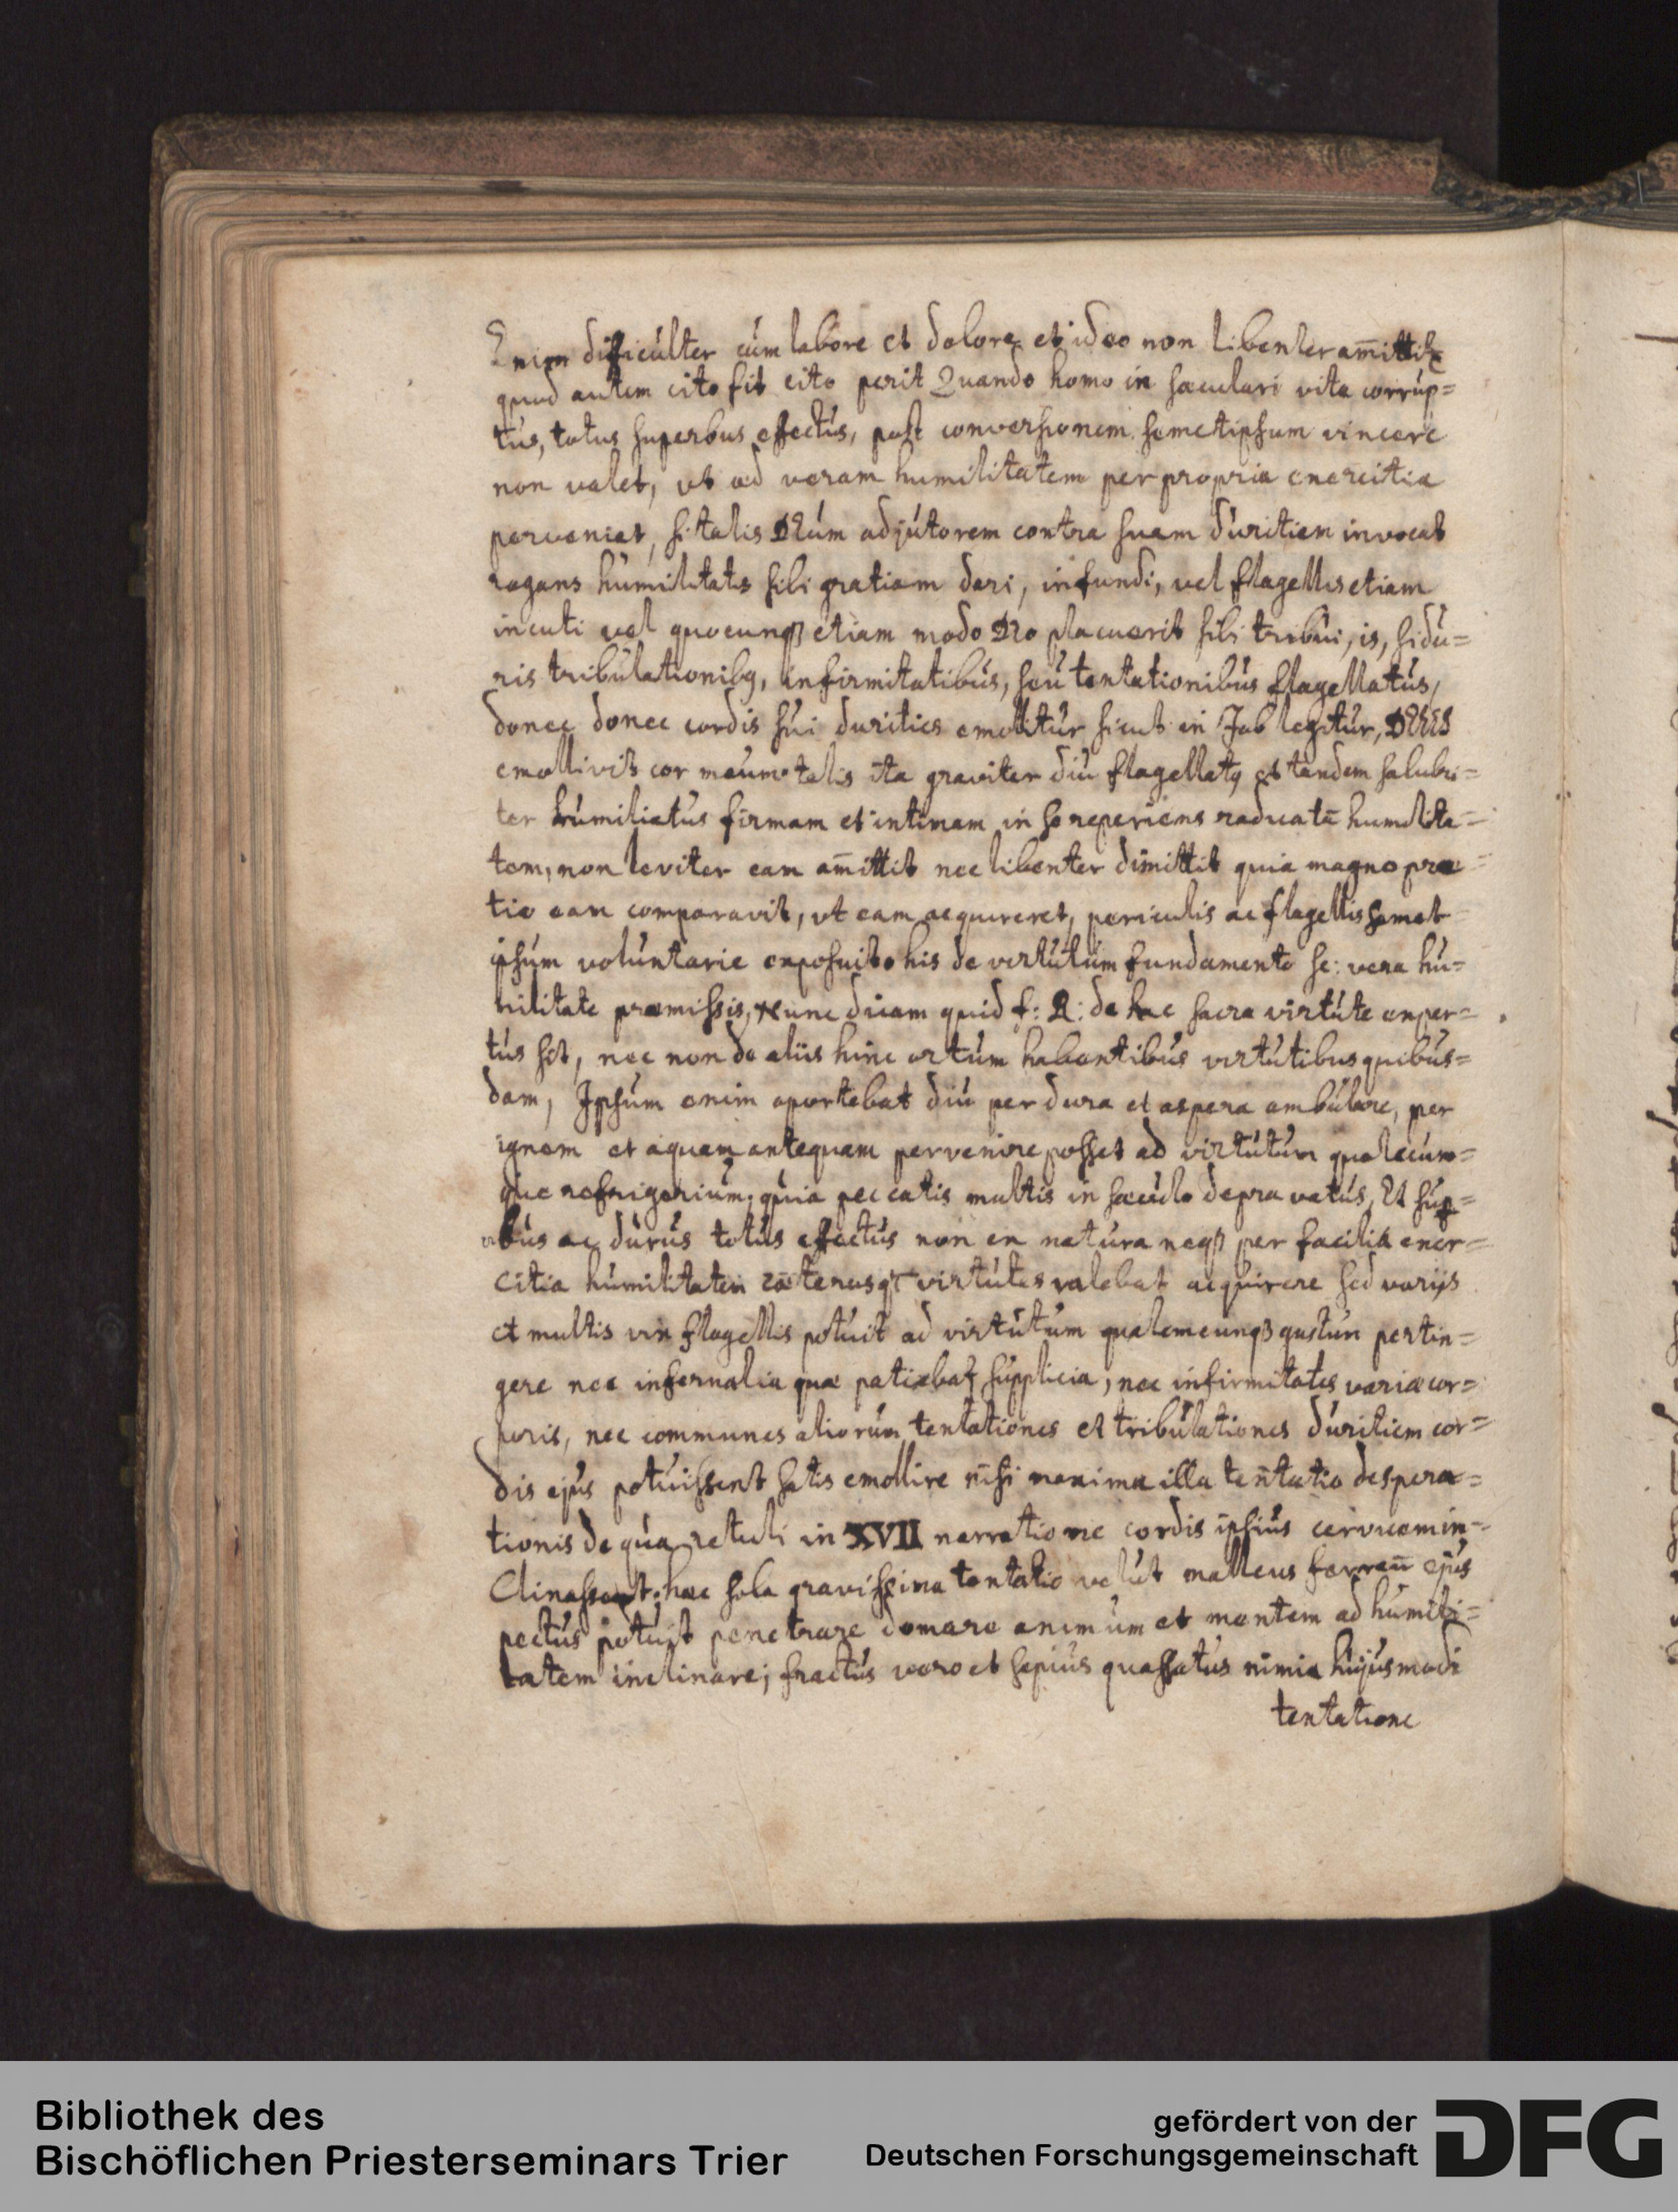 Enim difficulter cùm labore et dolore et ideo non libenter am̄ittitꝛ
quod autem cito fit cito perit Quando homo in sæculari vita corrup=
tus, totus superbus effectùs, post conversionem semetipsum vincere
non valet, ut ad veram humilitatem per propria exercitia
perveniat, si talis DEum adjùtorem contra suam duritiem invocat
rogans hùmilitatis sibi gratiam dari, infundi, vel flagellis etiam
incuti vel quocunqꝫ etiam modo DEo placuerit sibi tribùi, is, si dù=
ris tribùlationibꝰ, infirmitatibùs, seù tentationibùs flagellatùs,
donec donec cordis sùi durities emollitùr sicut in Job legitùr, DEUS
emollivit cor meum talis ita graviter diù flagellatꝰ et tandem salubri=
ter hùmiliatus firmam et intimam in se reperiens radicatā humilita=
tem, non leviter eam am̄ittit nec libenter dimittit quia magno præ=
tio eam comparavit, ut eam acquireret, periculis ac flagellis semet
ipsùm volùntarie exposuit. his de virtùtùm fundamento sc: vera hu=
militate præmissis, Nunc dicam quid f: R: de hac sacra virtùte exper=
tùs sit, nec non de aliis hinc ortùm habentibùs virtùtibus quibùs=
dam, Ipsùm enim oportebat diù per dura et aspera ambùlare, per
ignem et aquam antequam pervenire posset ad virtùtùm qualecum=
que refrigerium, qùia peccatis multis in sæcùlo depravatùs, Et sùp=
erbùs ac dùrùs totùs effectùs non ex natùra neqꝫ per facilia exer=
citia hùmilitatem cæterasqꝫ virtùtes valebat acqùirere sed varijs
et multis vix flagellis potùit ad virtùtùm qualemcunqꝫ gustùm pertin=
gere nec infernalia quæ patiebatꝛ sùpplicia, nec infirmitates variæ cor=
poris, nec communes aliorùm tentationes et tribùlationes dùritiem cor=
dis ejùs potùissent satis emollire nisi maxima illa tentatio despera=
tionis de qùa retuli in XVII narratione cordis ipsiùs cervicem in=
clinassent: hæc sola gravissima tentatio velùt malleus ferreū ejùs
pectùs potùit penetrare domare animùm et mentem ad hùmili=
tatem inclinare; fractùs vero et sepiùs quassatus nimia hùjùsmodi
tentatione
Bibliothek des
Bischöflichen Priesterseminars Trier
gefördert von der
Deutschen Forschungsgemeinschaft
DFG